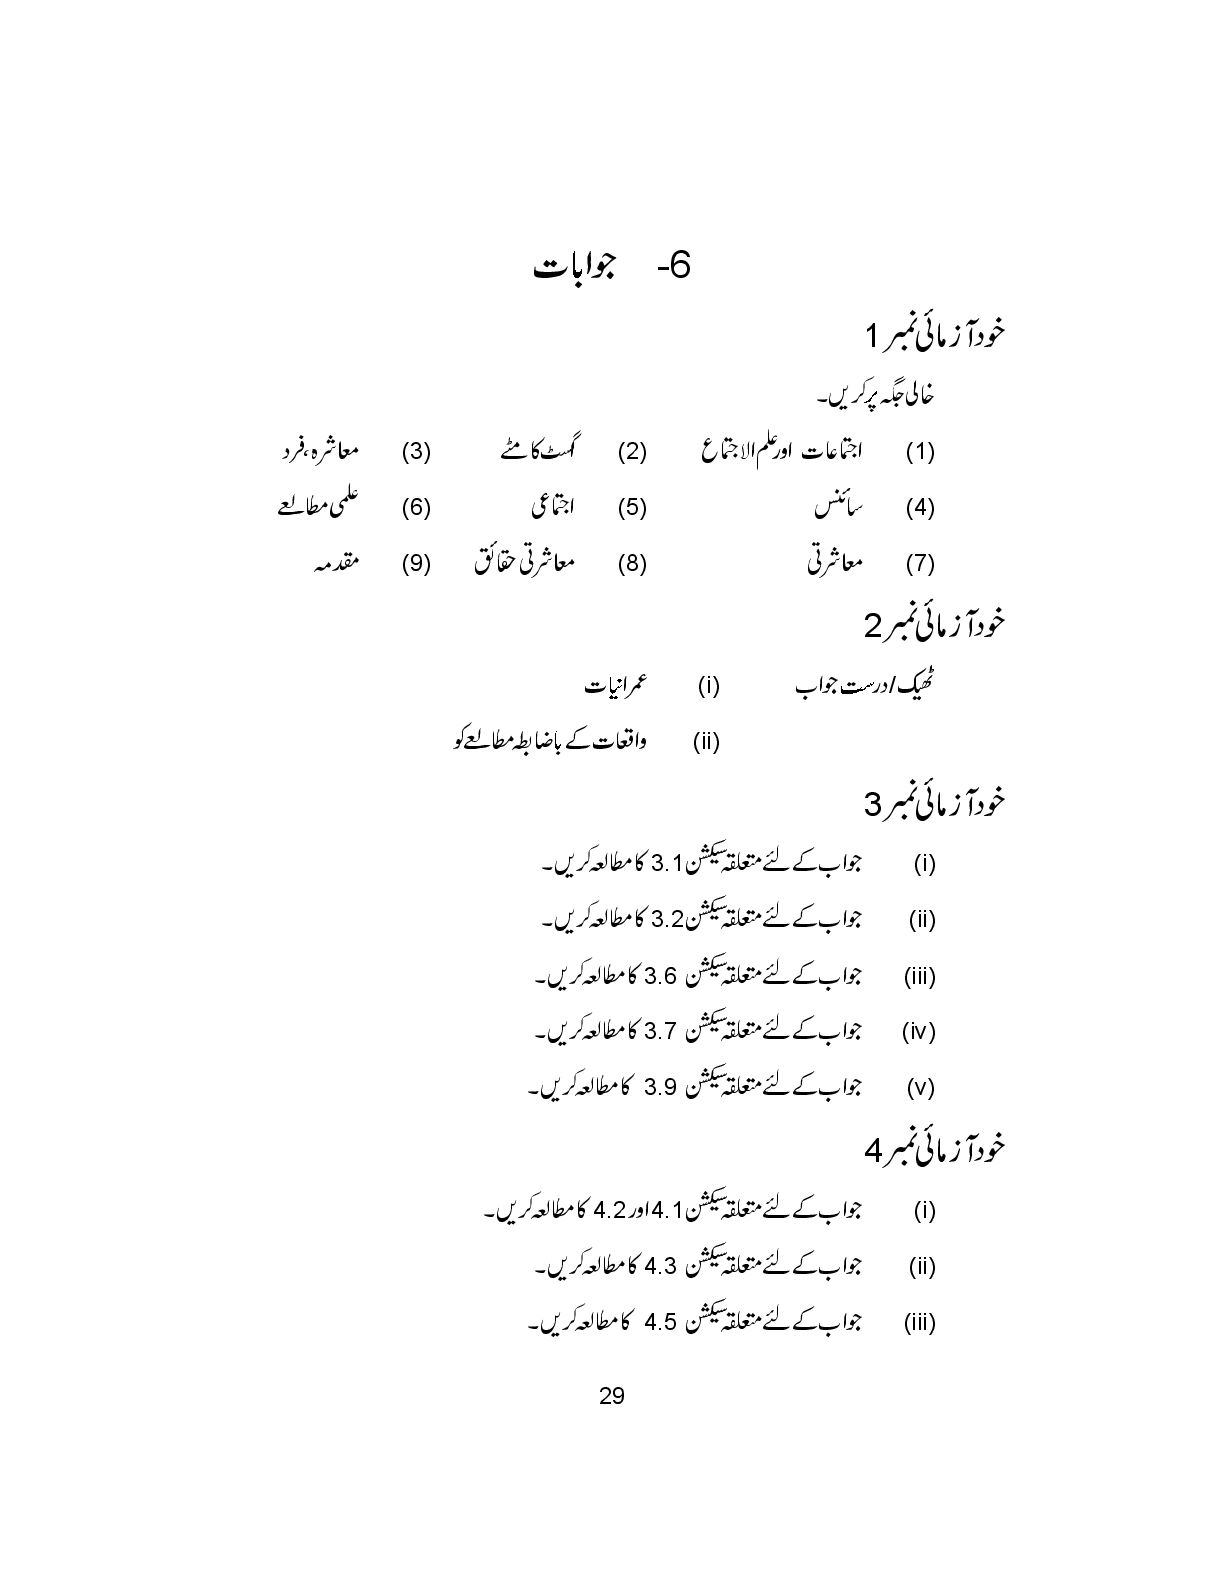 6- جوابات
خود آزمائی نمبر 1
خالی جگہ پر کریں۔
(1) اجتماعات اور علم الاجتماع (2) آگسٹ کامٹے (3) معاشرہ، فرد
(4) سائنس (5) اجتماعی (6) علمی مطالعے
(7) معاشرتی (8) معاشرتی حقائق (9) مقدمہ
خود آزمائی نمبر 2
ٹھیک/درست جواب (i) عمرانیات
(ii) واقعات کے باضابطہ مطالعے کو
خود آزمائی نمبر 3
(i) جواب کے لئے متعلقہ سیکشن 3.1 کا مطالعہ کریں۔
(ii) جواب کے لئے متعلقہ سیکشن 3.2 کا مطالعہ کریں۔
(iii) جواب کے لئے متعلقہ سیکشن 3.6 کا مطالعہ کریں۔
(iv) جواب کے لئے متعلقہ سیکشن 3.7 کا مطالعہ کریں۔
(v) جواب کے لئے متعلقہ سیکشن 3.9 کا مطالعہ کریں۔
خود آزمائی نمبر 4
(i) جواب کے لئے متعلقہ سیکشن 4.1 اور 4.2 کا مطالعہ کریں۔
(ii) جواب کے لئے متعلقہ سیکشن 4.3 کا مطالعہ کریں۔
(iii) جواب کے لئے متعلقہ سیکشن 4.5 کا مطالعہ کریں۔
29